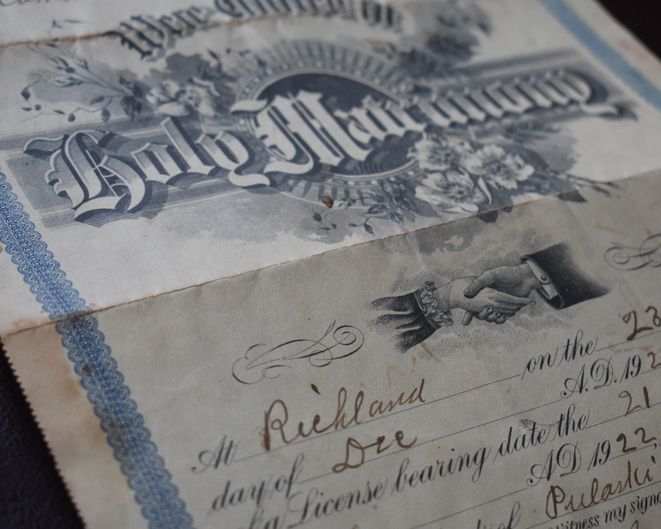 Were United in
Holy Matrimony
At Richland on the 23
day of Dec A.D. 192
of a License bearing date the 21
AD 1922.
of Pulaski
witness my signa